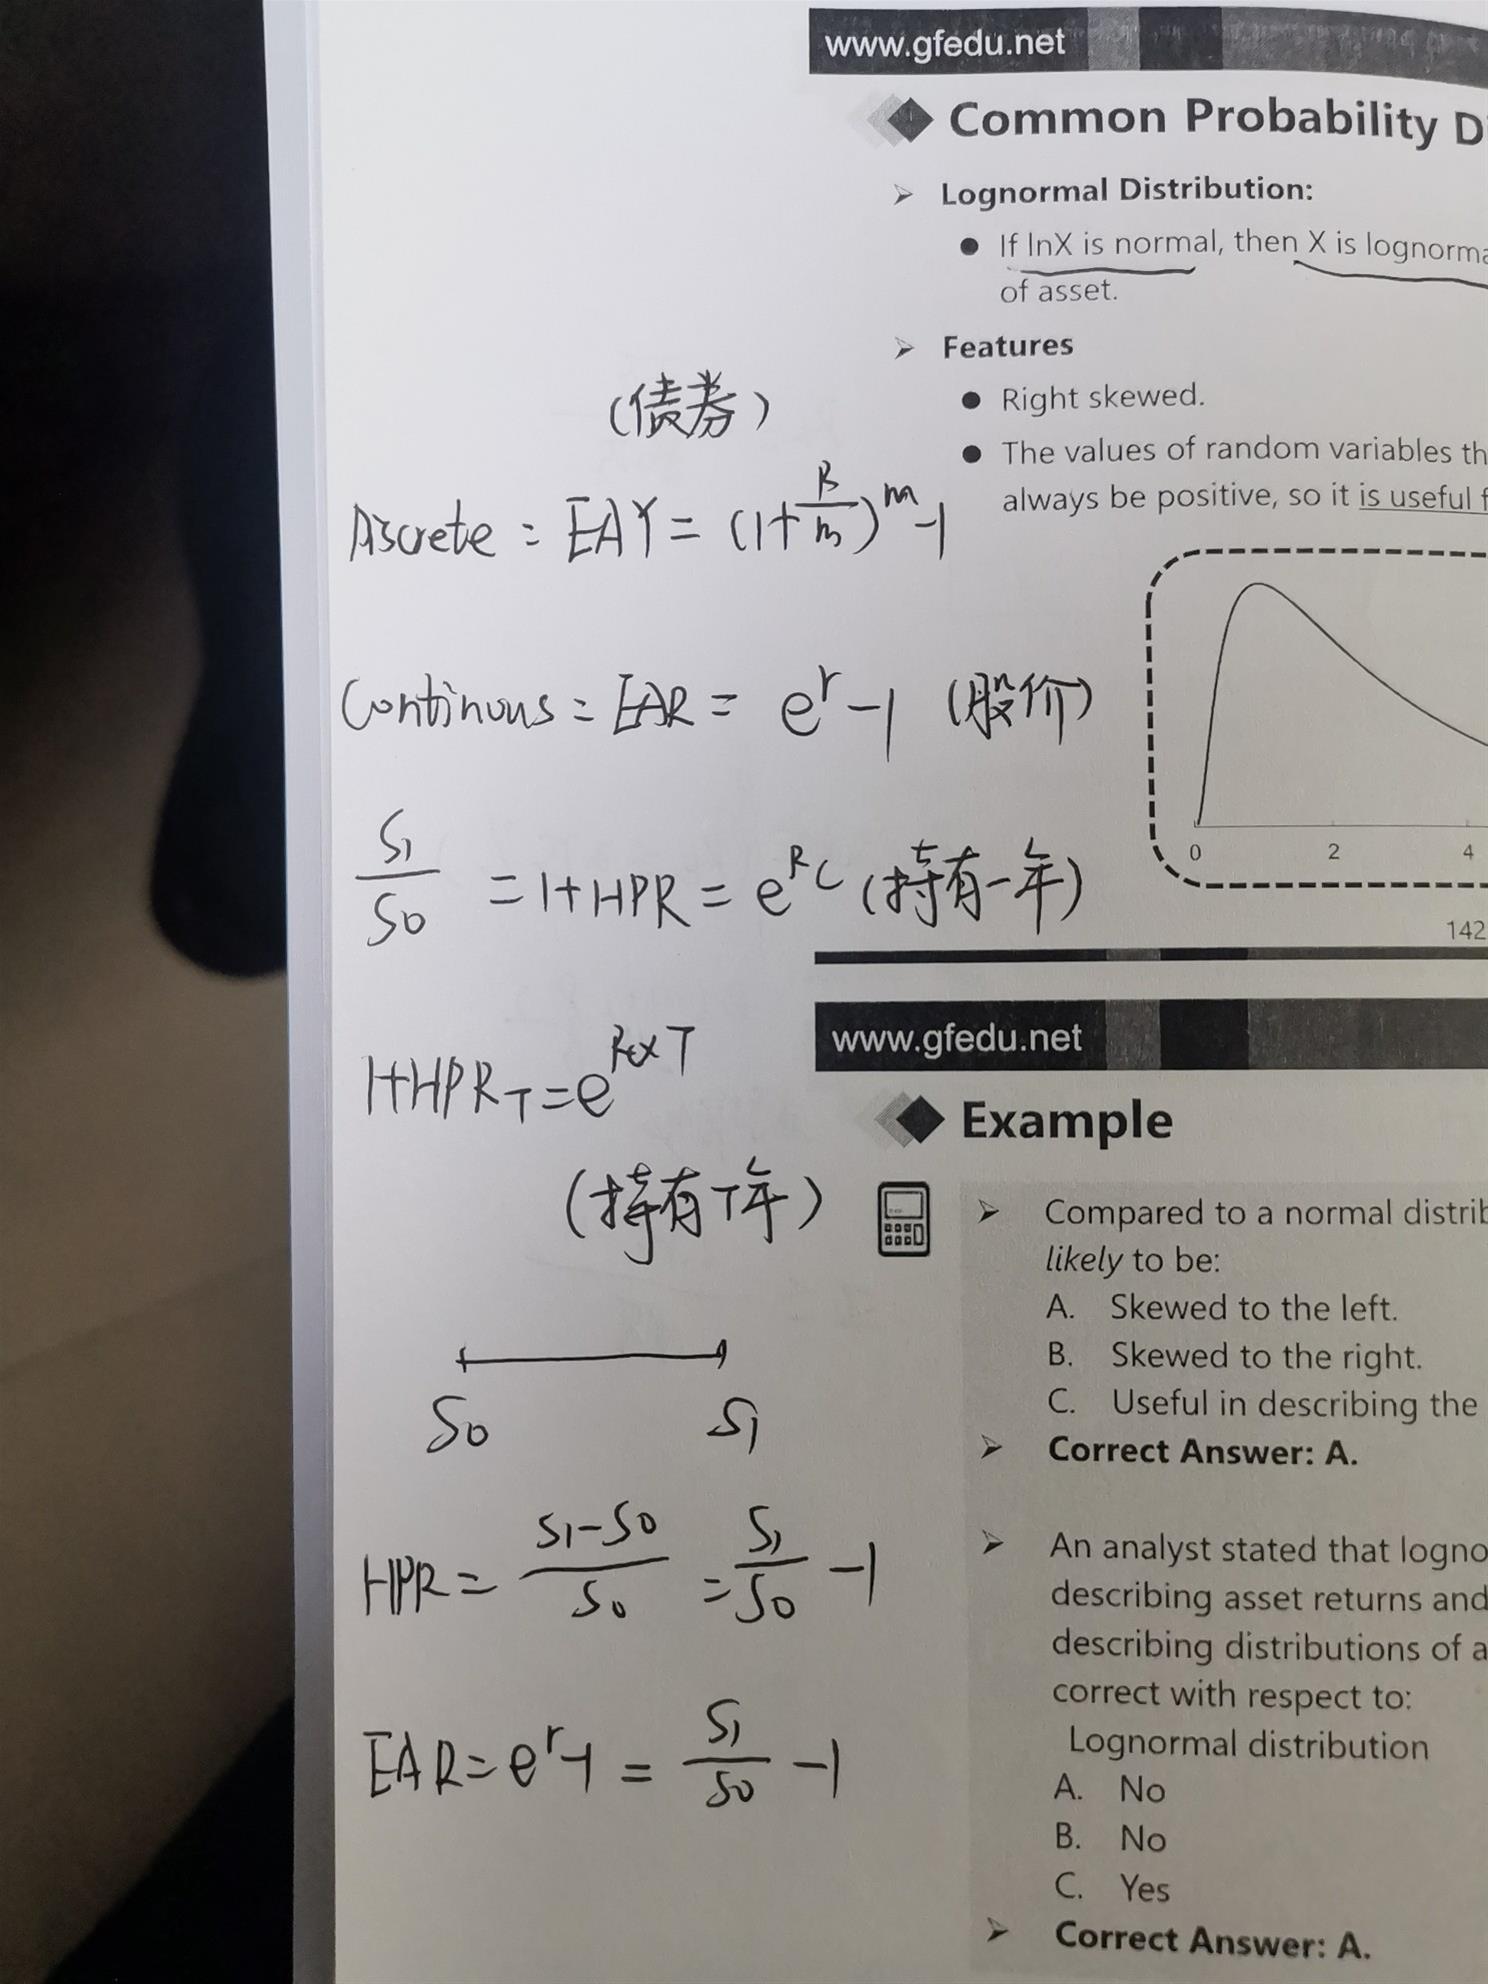 www.gfedu.net
Common Probability D
Lognormal Distribution:
If lnX is normal, then X is lognorma
of asset.
Features
Right skewed.
The values of random variables th
always be positive, so it is useful f
0 2 4
142
(债券)
Discrete : EAY = (1+R/m)^m -1
Continous : EAR = e^r -1 (股价)
S1/S0 = 1+HPR = e^Rc (持有一年)
1+HPR_T = e^Rc×T
(持有T年)
S0 S1
HPR = S1-S0/S0 = S1/S0 -1
EAR = e^r-1 = S1/S0 -1
www.gfedu.net
Example
Compared to a normal distrib
likely to be:
A. Skewed to the left.
B. Skewed to the right.
C. Useful in describing the
Correct Answer: A.
An analyst stated that logno
describing asset returns and
describing distributions of a
correct with respect to:
Lognormal distribution
A. No
B. No
C. Yes
Correct Answer: A.